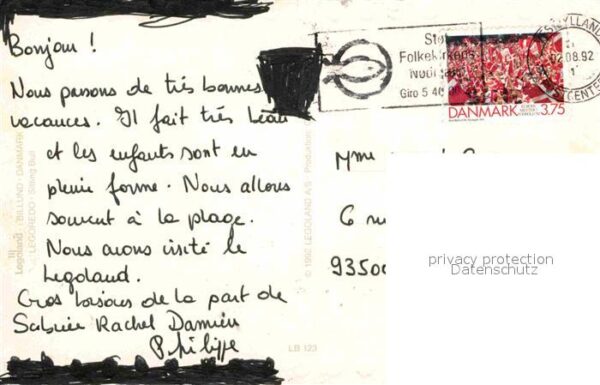 Bonjour !
Nous passons de très bonnes
vacances. Il fait très beau
et les enfants sont en
pleine forme. Nous allons
souvent à la plage.
Nous avons visité le
Legoland.
Gros baisers de la part de
Sabrine Rachel Damien
Philippe
Legoland · BILLUND · DANMARK
LEGOREDO · Sitting Bull
© 1992 LEGOLAND A/S · Production
LB 123
Støt
Folkekirkens
Nødhjælp
Giro 5 40
02.08.92
DANMARK 3.75
Mme
6 rue
93500
privacy protection
Datenschutz